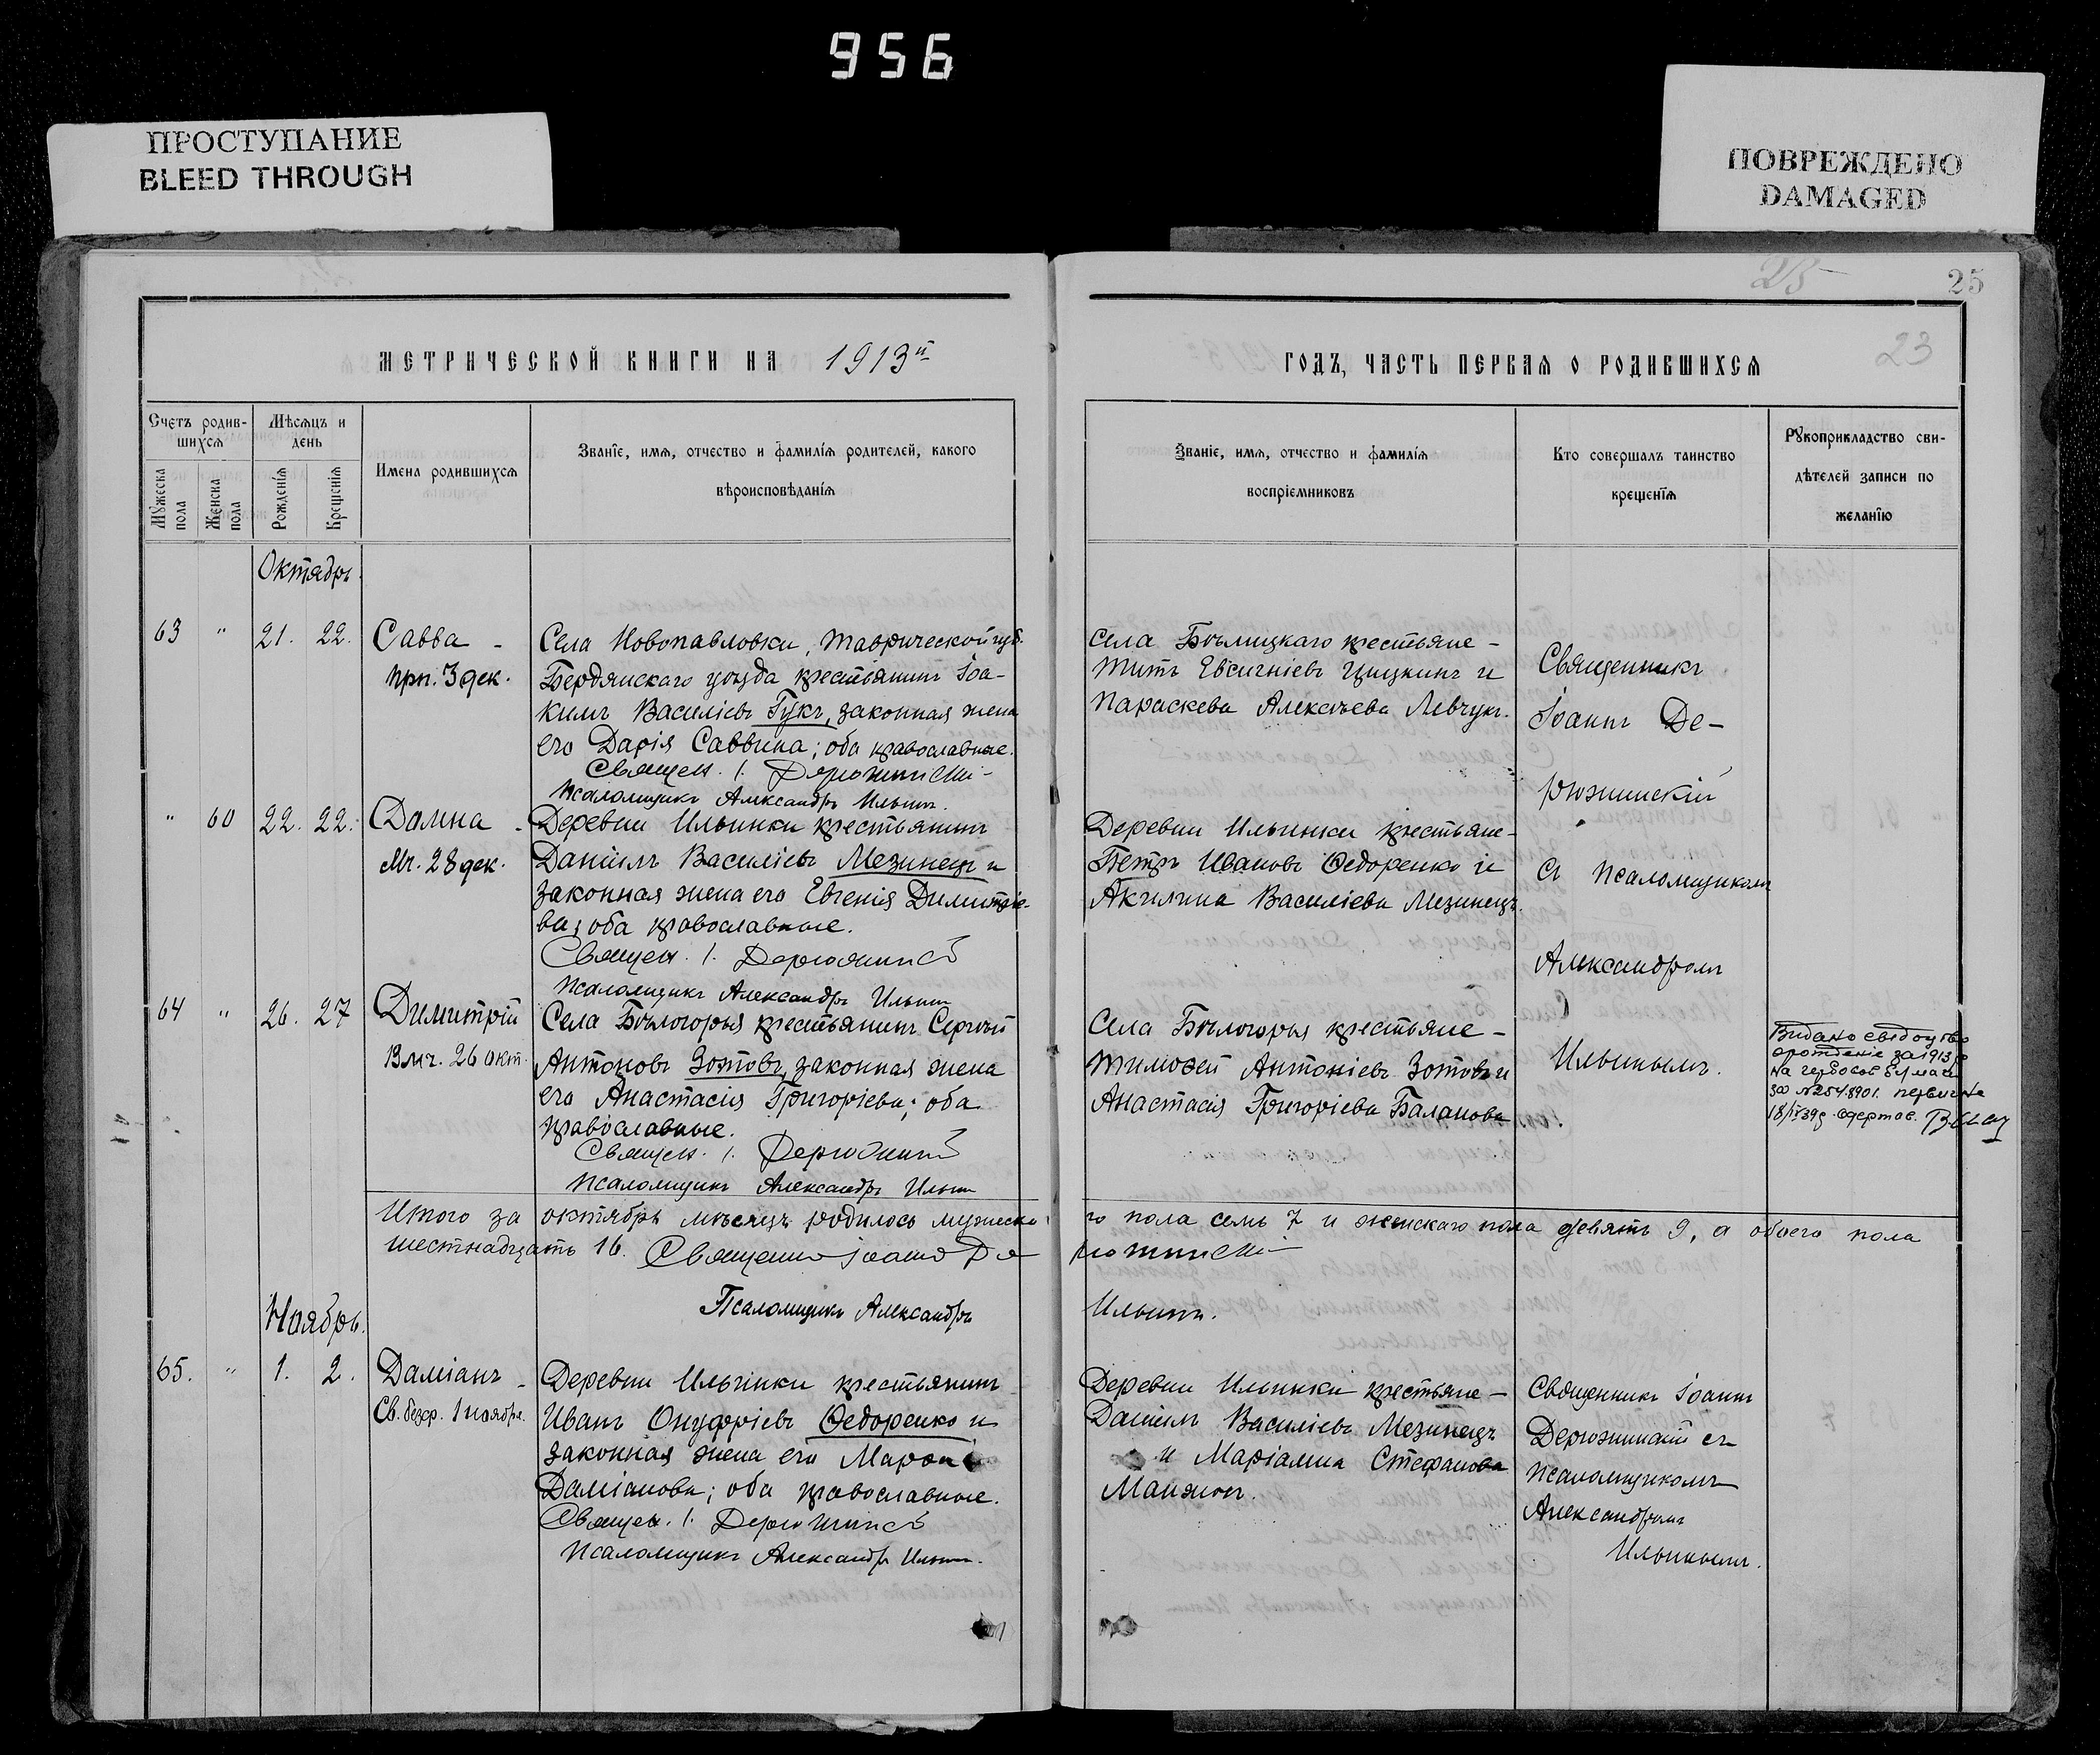 956
ПРОСТУПАНИЕ
BLEED THROUGH
ПОВРЕЖДЕНО
DAMAGED
25
25
23
МЕТРИЧЕСКОЙ КНИГИ НА 1913й
ГОДЪ, ЧАСТЬ ПЕРВАЯ О РОДИВШИХСЯ
Счетъ родив-
шихся
Мужеска
пола
Женска
пола
Мѣсяцъ и
день
Рожденія
Крещенія
Имена родившихся
Званіе, имя, отчество и фамилія родителей, какого
вѣроисповѣданія
Званіе, имя, отчество и фамилія
воспріемниковъ
Кто совершалъ таинство
крещенія
Рукоприкладство сви-
дѣтелей записи по
желанію
Октябрь.
63 " 21. 22.
Савва -
прп. 3 дек.
Села Новопавловки, Таврической губ.
Бердянскаго уѣзда крестьянинъ Іоа-
кимъ Василіевъ Гукъ, законная жена
его Дарія Саввина; оба православные.
Священ. І. Дерюжинскій
Псаломщикъ Александръ Ильинъ.
Села Бѣлицкаго крестьяне -
Титъ Евсигніевъ Цицкинъ и
Параскева Алексѣева Левчукъ.
Священникъ
Іоаннъ Де-
рюжинскій
съ псаломщикомъ
Александромъ
Ильинымъ.
" 60 22. 22.
Домна -
Мч. 28 дек.
Деревни Ильинки крестьянинъ
Даніилъ Василіевъ Мезинецъ и
законная жена его Евгенія Димитріе-
ва; оба православные.
Священ. І. Дерюжинскій
Псаломщикъ Александръ Ильинъ
Деревни Ильинки крестьяне -
Петръ Ивановъ Ѳедоренко и
Акилина Василіева Мезинецъ.
64 " 26. 27
Димитрій
Влмч. 26 окт.
Села Бѣлогорья крестьянинъ Сергѣй
Антоновъ Зотовъ, законная жена
его Анастасія Григоріева; оба
православные.
Священ. І. Дерюжинскій
Псаломщикъ Александръ Ильинъ
Села Бѣлогорья крестьяне -
Тимоѳей Антоніевъ Зотовъ и
Анастасія Григоріева Баланова
Видано свідоцтво
о рождение за 1913 р
на гербовой бумаге
за №2548901.
18/IV 39 г.
Итого за октябрь мѣсяцъ родилось мужеска-
го пола семь 7 и женскаго пола девять 9, а обоего пола
шестнадцать 16. Священникъ Іоаннъ Де-
рюжинскій
Псаломщикъ Александръ
Ильинъ.
Ноябрь.
65. " 1. 2.
Даміанъ -
Св. безср. 1 ноября.
Деревни Ильинки крестьянинъ
Иванъ Онуфріевъ Ѳедоренко и
законная жена его
Даміанова; оба православные.
Священ. І. Дерюжинскій
Псаломщикъ Александръ Ильинъ.
Деревни Ильинки крестьяне -
Даніилъ Василіевъ Мезинецъ
и Маріамна Стефанова
Священникъ Іоаннъ
Дерюжинскій съ
псаломщикомъ
Александромъ
Ильинымъ.